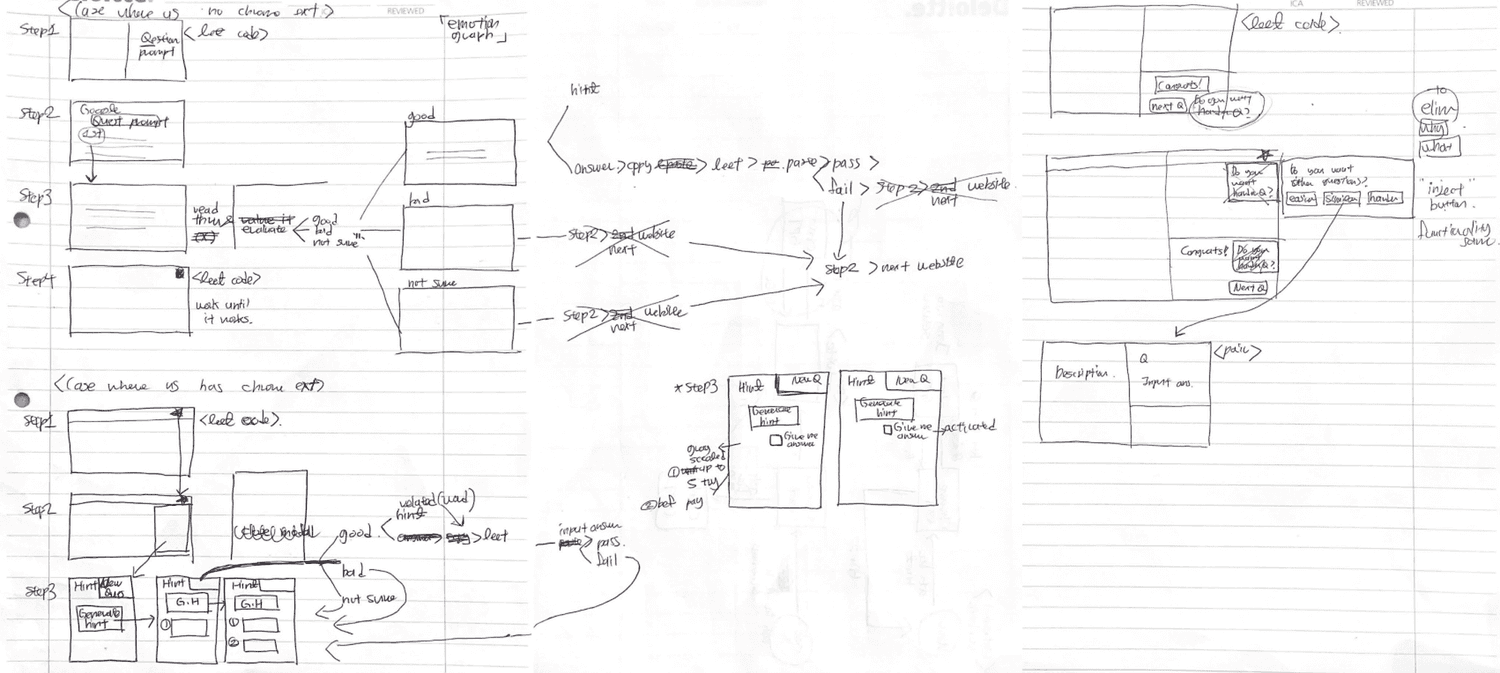 <Case where us no chrome ext.>
REVIEWED
「emotion
graph」
Step1
Qestion
prompt
<leet code>
Step2
Google
Quest prompt
Step3
read
thru &
evaluate
good
bad
not sure
good
bad
not sure
Step4
<leet code>
wait until
it works.
hint
answer > copy > leet > paste > pass >
fail > Step2 > next website.
Step2 > next website
Step2 > next website
Step2 > next website
<Case where us has chrome ext>
Step1
<leet code>.
Step2
Step3
Hint
New
Ques
Generate
hint
Hint
G.H
①
Hint
G.H
①
②
good
related (read)
hint
> leet
bad
not sure
input answer
> pass.
fail
*Step3
Hint
New Q
Generate
hint
Give me
answer
① up to
5 try
② bef pay
Hint
New Q
Generate
hint
Give me
answer
activated
ICA
REVIEWED
<leet code>.
Congrats!
next Q
Do you want
harder Q?
to
elim
why
what
Do you
want
harder Q?
Do you want
other questions?
easier
similar
harder
"inject"
button.
functionality
same.
Congrats!
Do you
want
harder Q?
Next Q
<pair>
Description.
Q
Input ans.